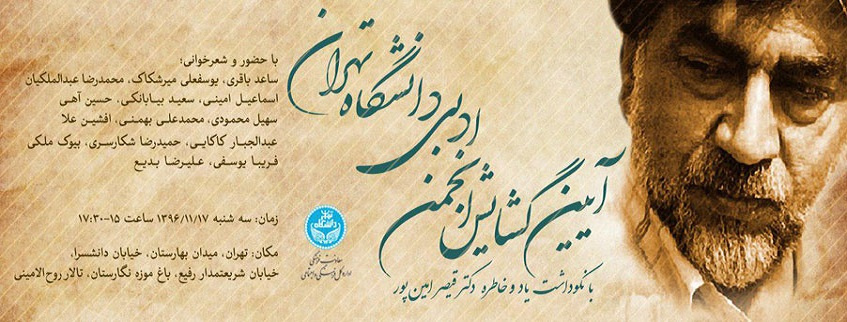 آیین گشایش انجمن
ادبی دانشگاه تهران
با نکوداشت یاد و خاطره دکتر قیصر امین پور
با حضور و شعرخوانی:
ساعد باقری، یوسفعلی میرشکاک، محمدرضا عبدالملکیان
اسماعیل امینی، سعید بیابانکی، حسین آهی
سهیل محمودی، محمدعلی بهمنی، افشین علا
عبدالجبار کاکایی، حمیدرضا شکارسری، بیوک ملکی
فریبا یوسفی، علیرضا بدیع
زمان: سه شنبه ۱۳۹۶/۱۱/۱۷ ساعت ۱۵-۱۷:۳۰
مکان: تهران، میدان بهارستان، خیابان دانشسرا،
خیابان شریعتمدار رفیع، باغ موزه نگارستان، تالار روح الامینی
معاونت فرهنگی